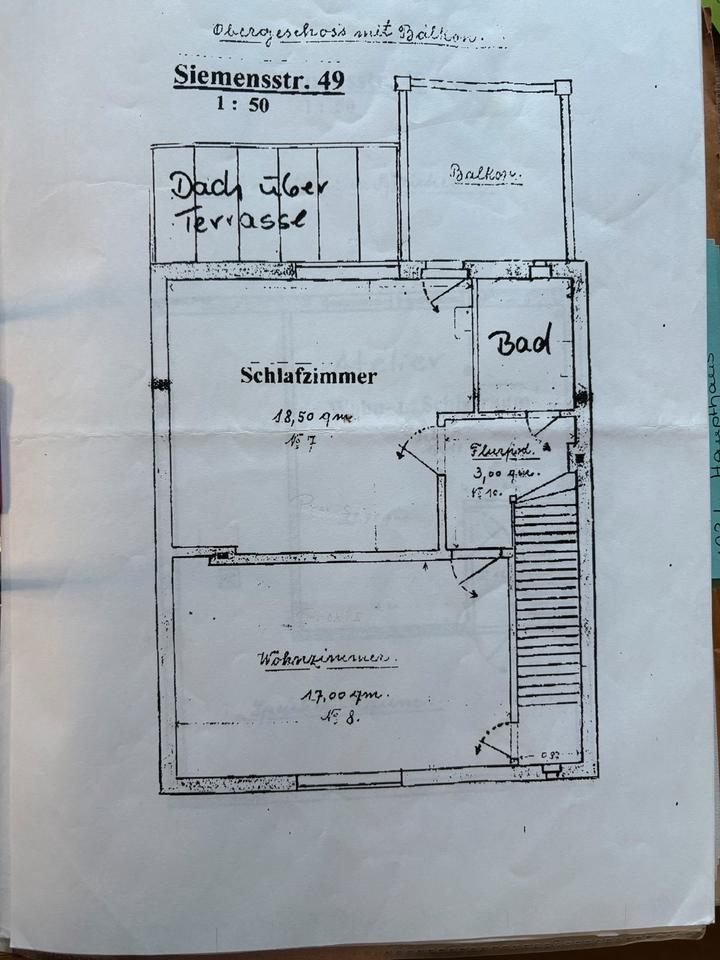 Obergeschoss mit Balkon.
Siemensstr. 49
1 : 50
Balkon.
Dach über
Terrasse
Bad
Schlafzimmer
18,50 qm
№ 7
Flurpod.
3,00 qm.
№ 10.
Wohnzimmer.
17,00 qm.
№ 8.